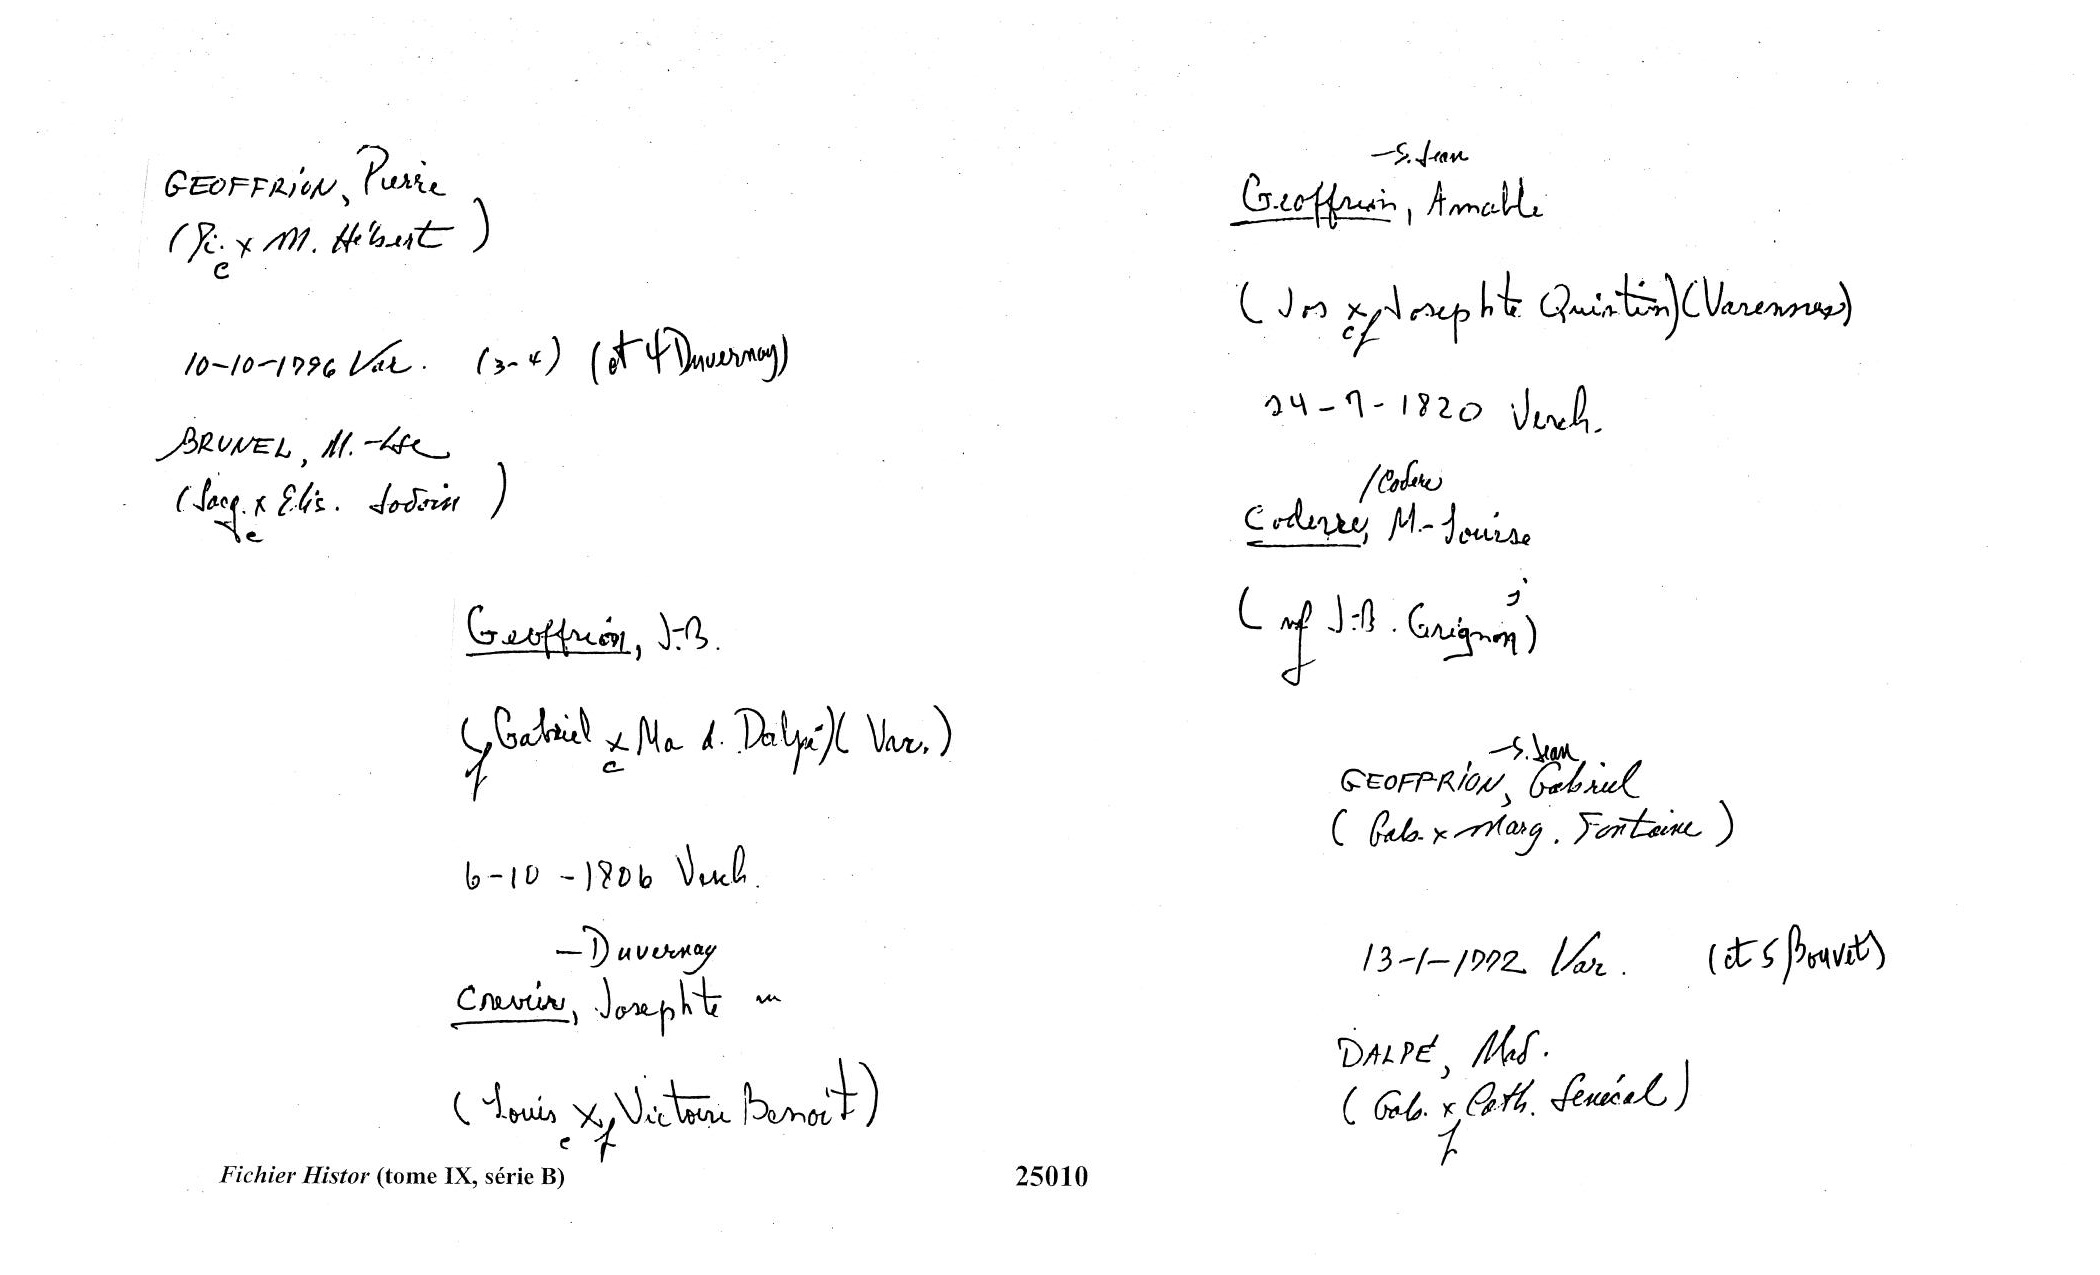 GEOFFRION, Pierre
(Pi. x M. Hébert)
c
10-10-1796 Var. (3-4) (et 4 Duvernay)
BRUNEL, M.-Lse
(Jacq. x Elis. Jodoin)
c
Geoffrion, J.-B.
(Gabriel x Ma d. Dalpé) (Var.)
f c
6-10-1806 Verch.
-Duvernay
Crevier, Josephte m
(Louis x Victoire Benoit)
c f
-S. Jean
Geoffrion, Amable
(Jos x Josephte Quintin) (Varennes)
c f
24-7-1820 Verch.
/Codere
Coderre, M.-Louise
(vf J.-B. Grignon)
-S. Jean
GEOFFRION, Gabriel
(Gab. x Marg. Fontaine)
13-1-1772 Var. (et 5 Bouvet)
DALPÉ, Mad.
(Gab. x Cath. Senécal)
f
Fichier Histor (tome IX, série B) 25010